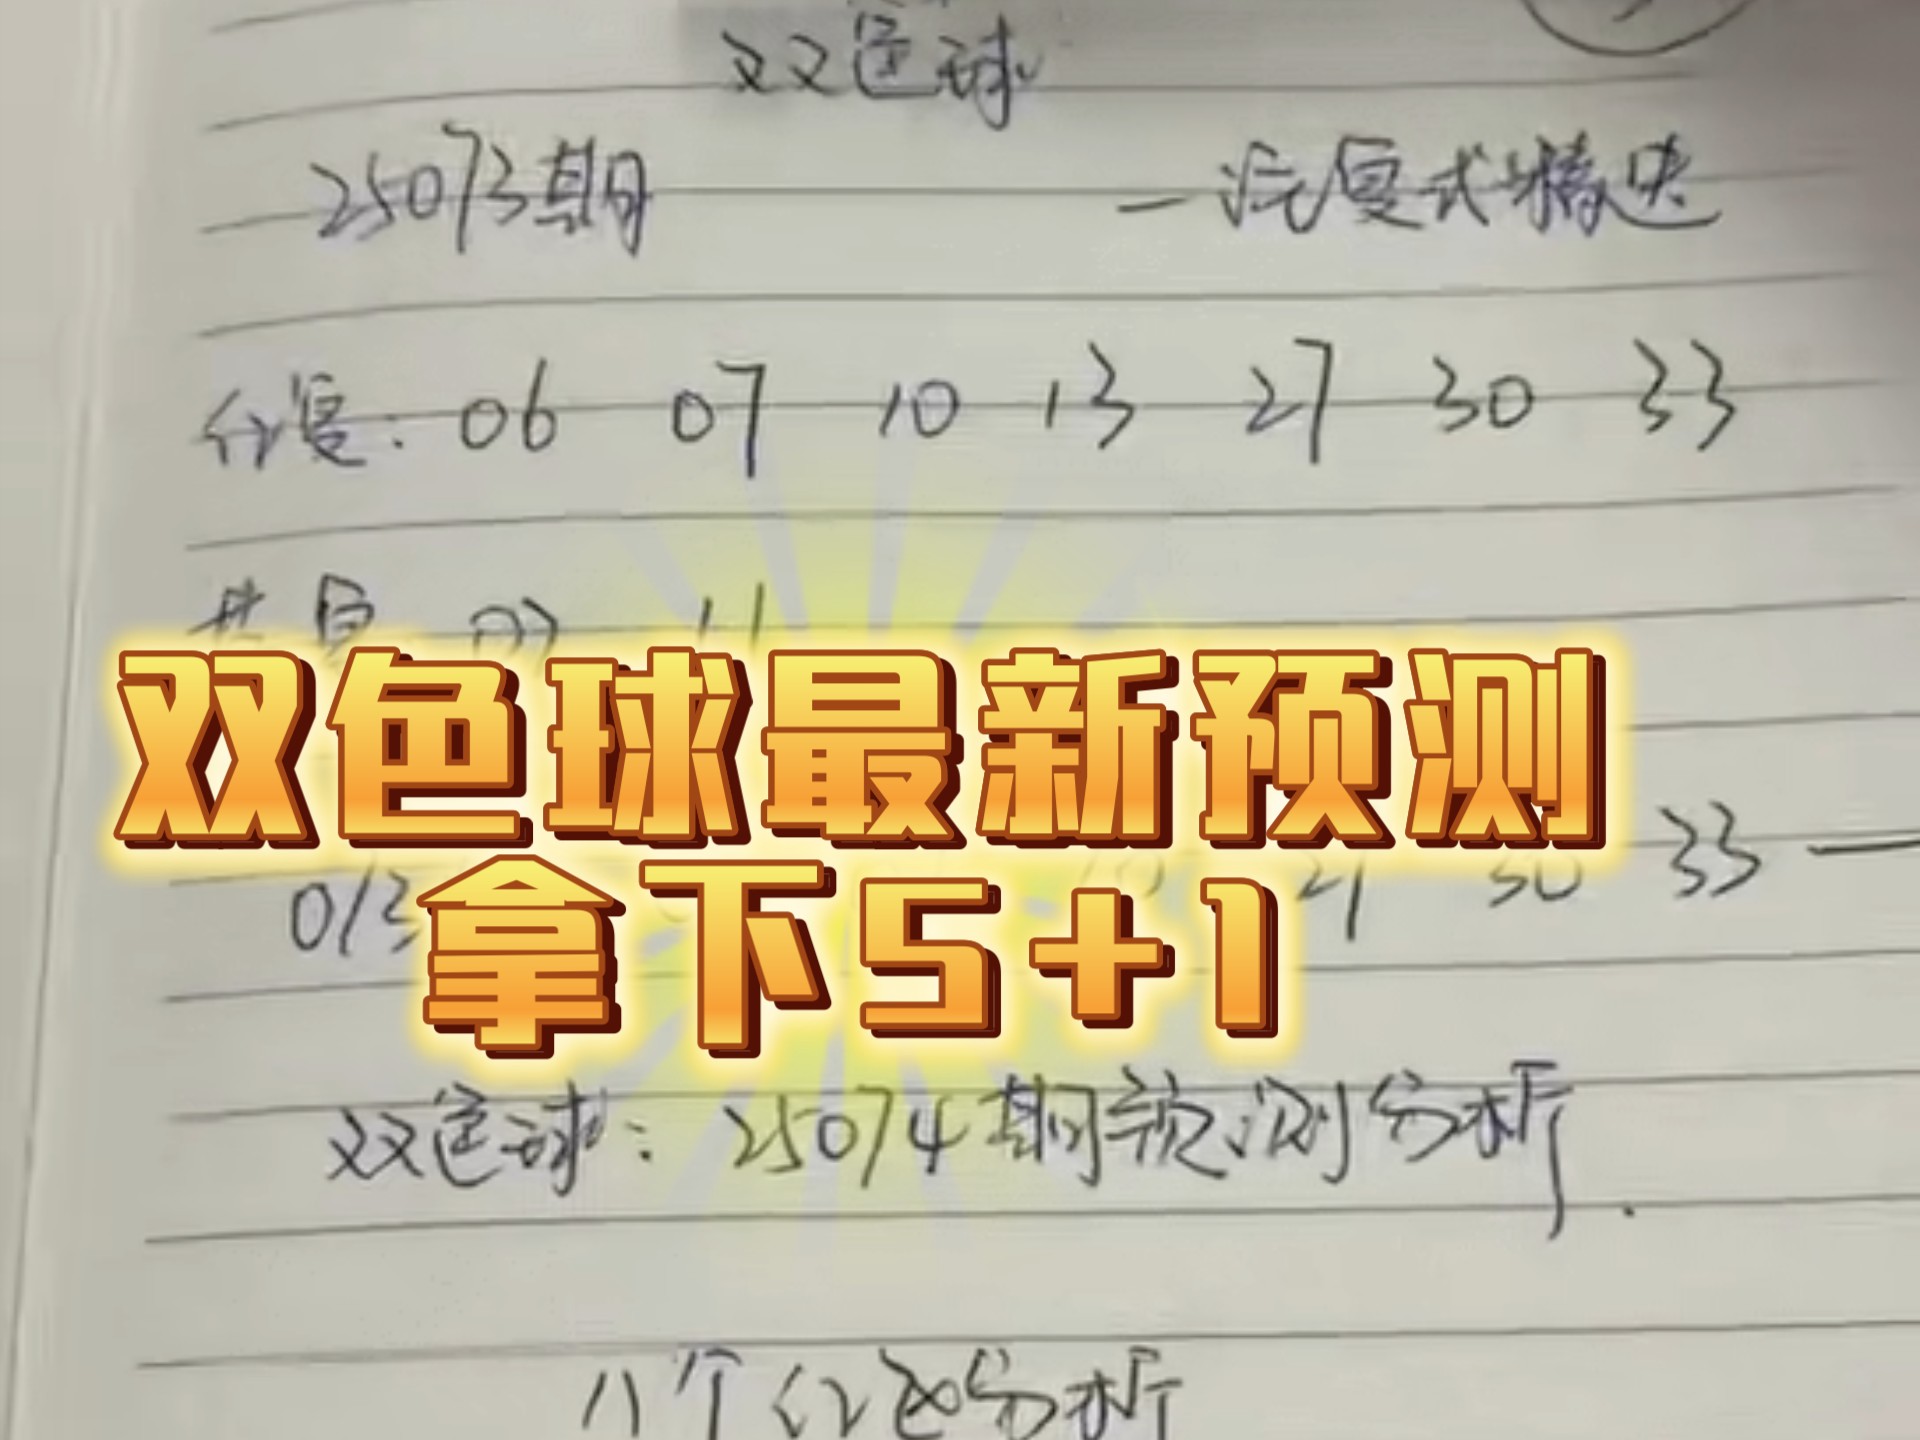 双色球
25073期 一注复式精选
红复: 06 07 10 13 27 30 33
双色球最新预测
30 33 —
拿下5+1
双色球: 25074期预测分析.
八个红色分析